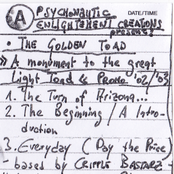 A PSYCHONAUTIC DATE/TIME
ENLIGHTEMENT CREATIONS
presents:
• THE GOLDEN TOAD
A monument to the great
Light Toad & Promo '02/'03
1. The Turn of Arizona...
2. The Beginning / A Intro-
duction
3. Everyday (Day the Price)
based by CRIPPLE BASTARZ-